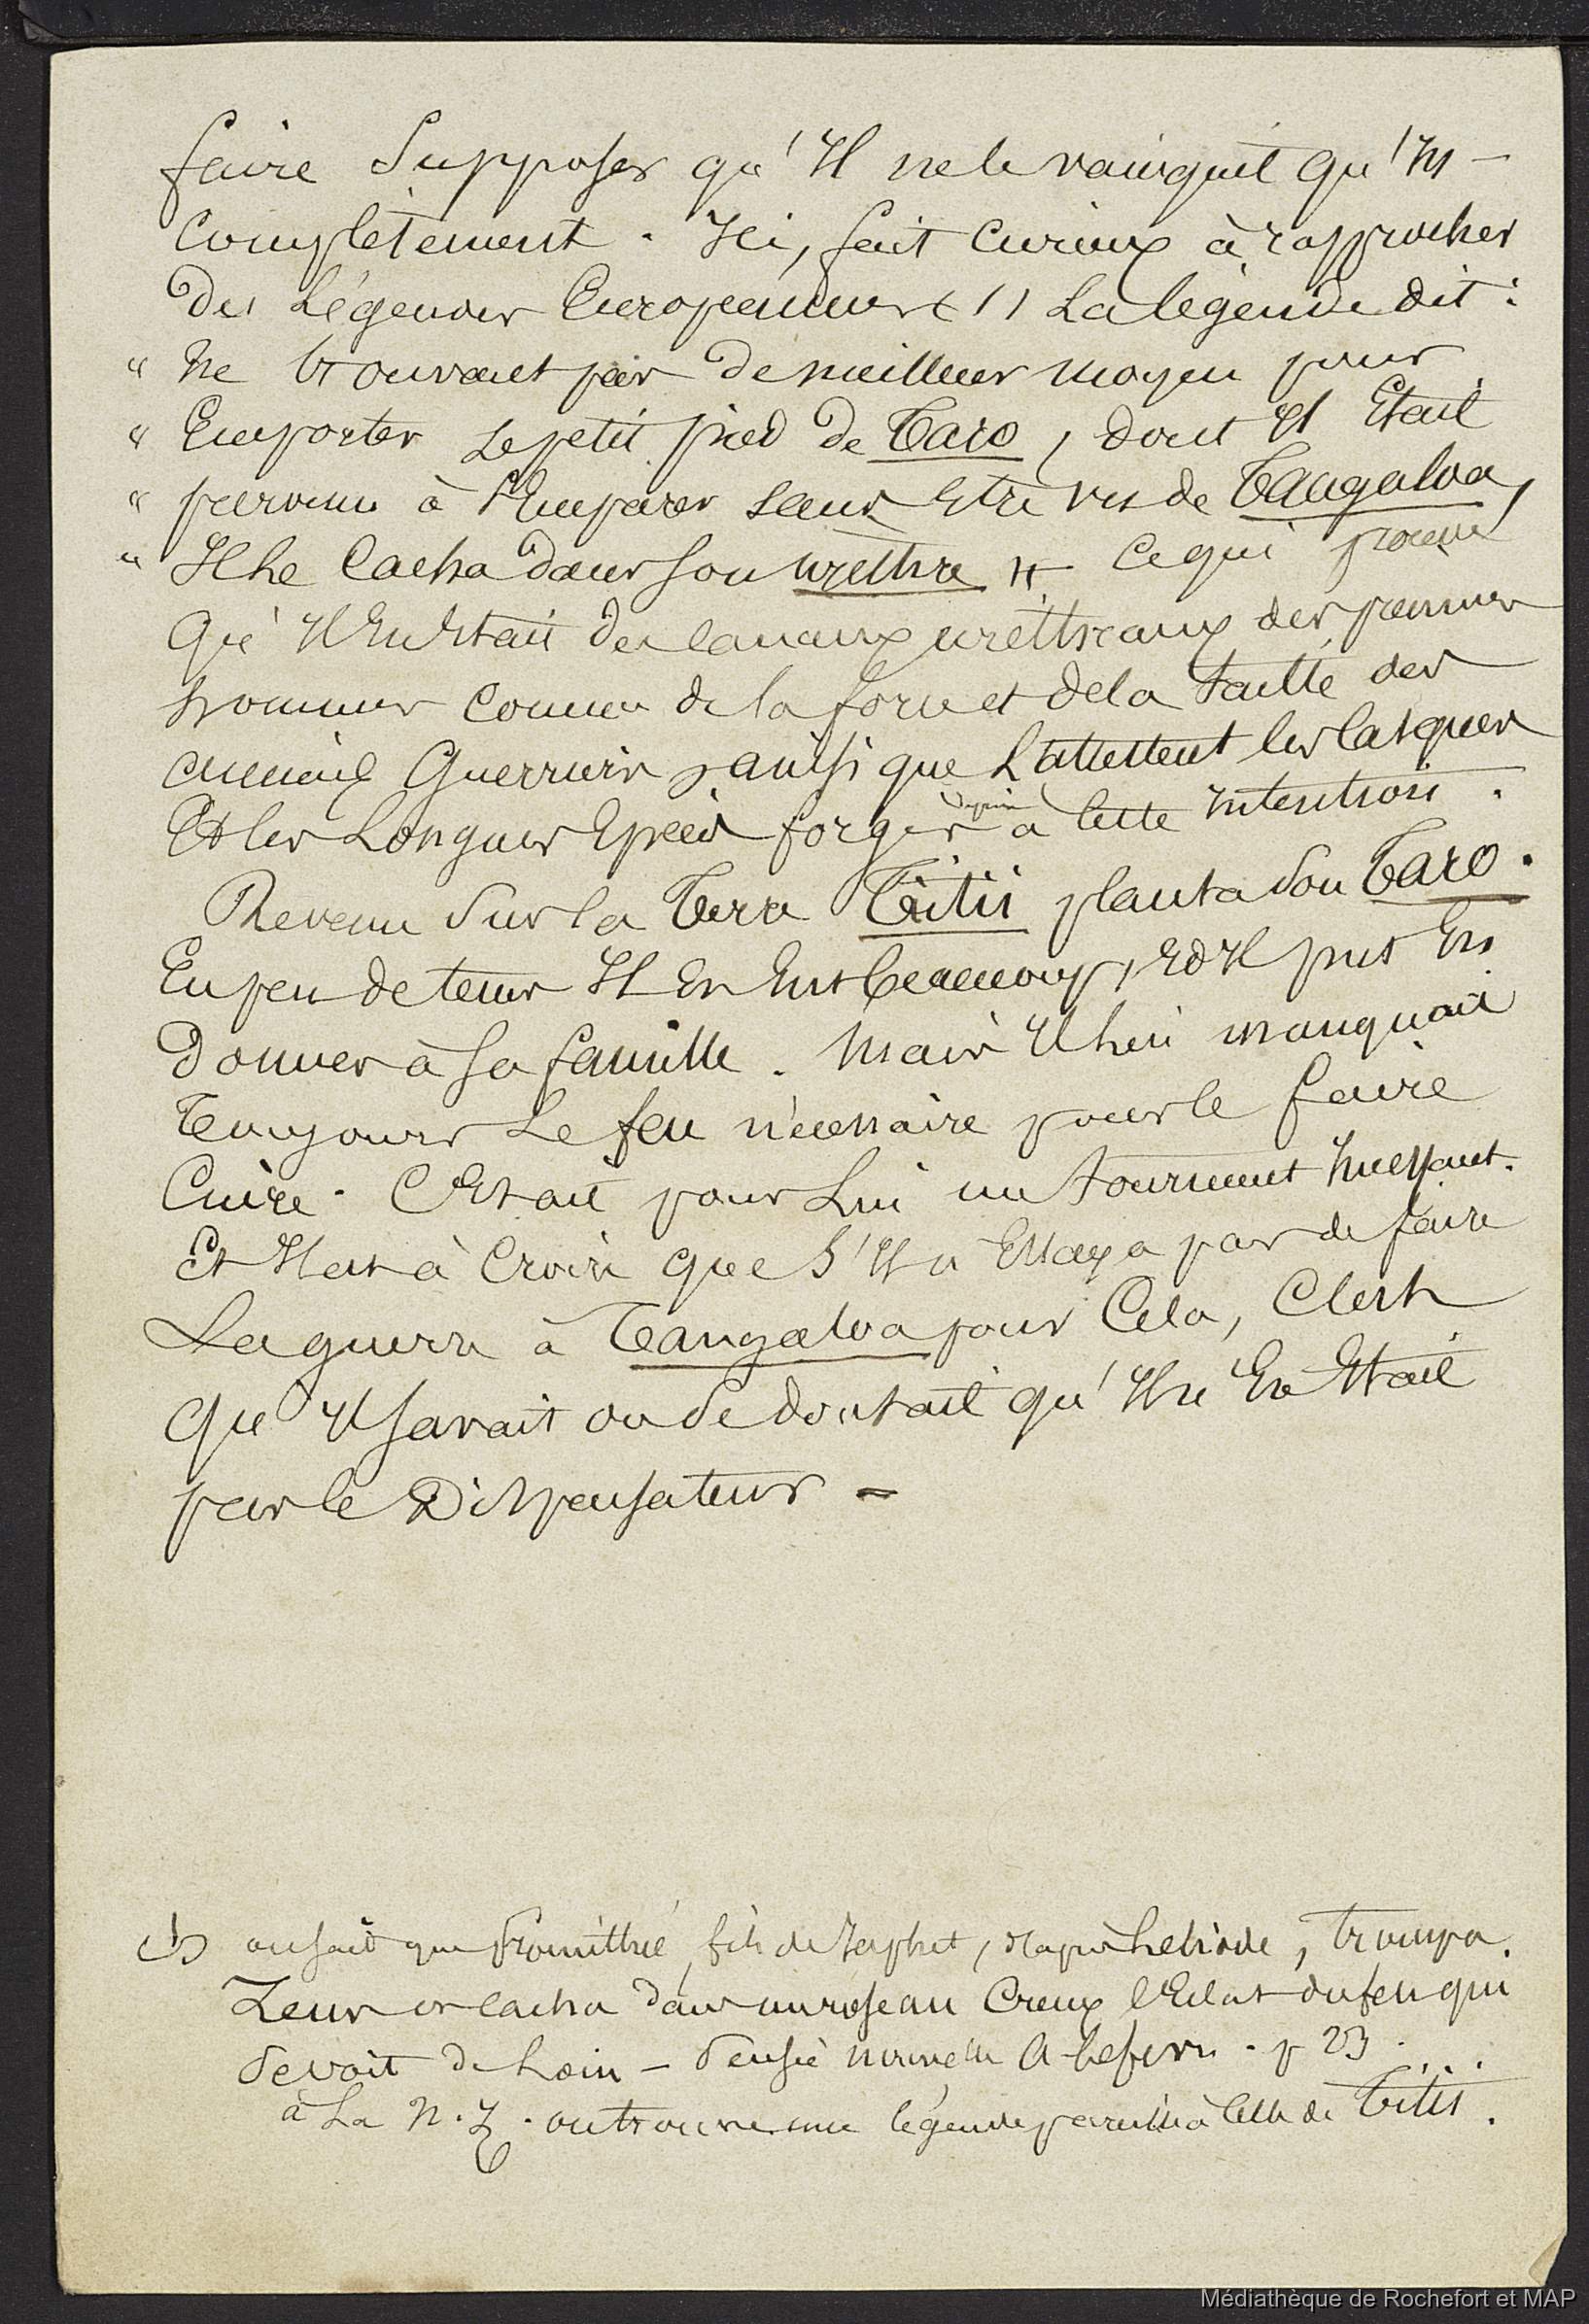 faire Supposer qu'Il ne le vainquit qu'In-
complètement. Ici, fait curieux à rapprocher
des Légendes Européennes (1) La légende dit:
" Ne trouvant pas de meilleur moyen pour
" Emporter le petit pied de Taro, dont Il Etait
" parvenu à s'Emparer sans Etre vu de Tangaloa,
" Il le Cacha dans son urèthre ". Ce qui prouve
qu'Il En Etait des canaux urèthraux des premiers
hommes comme de la force et de la taille des
anciens Guerriers, ainsi que l'attestent les casques
Et les Longues Epées forgés depuis à cette Intention.
Revenu sur la Terre Titii planta son Taro.
En peu de tems Il En Eut beaucoup, Et Il put En
donner à sa famille. Mais Il lui manquait
Toujours Le feu nécessaire pour le faire
Cuire. C'Etait pour Lui un tourment Incessant.
Et Il est à Croire que S'Il n'Essaya pas de faire
La guerre à Tangaloa pour Cela, C'est
que Il savait ou se doutait qu'Il n'En Etait
pas le Dispensateur -
(1) on sait que Prométhée, fils de Japhet, d'après Hésiode, trompa
Zeus et cacha dans un roseau Creux l'Eclat du feu qui
se voit de Loin - Pensée nouvelle A. Lefèvre. p 23.
à La N. Z. on trouve une légende pareille à celle de Titii.
Médiathèque de Rochefort et MAP